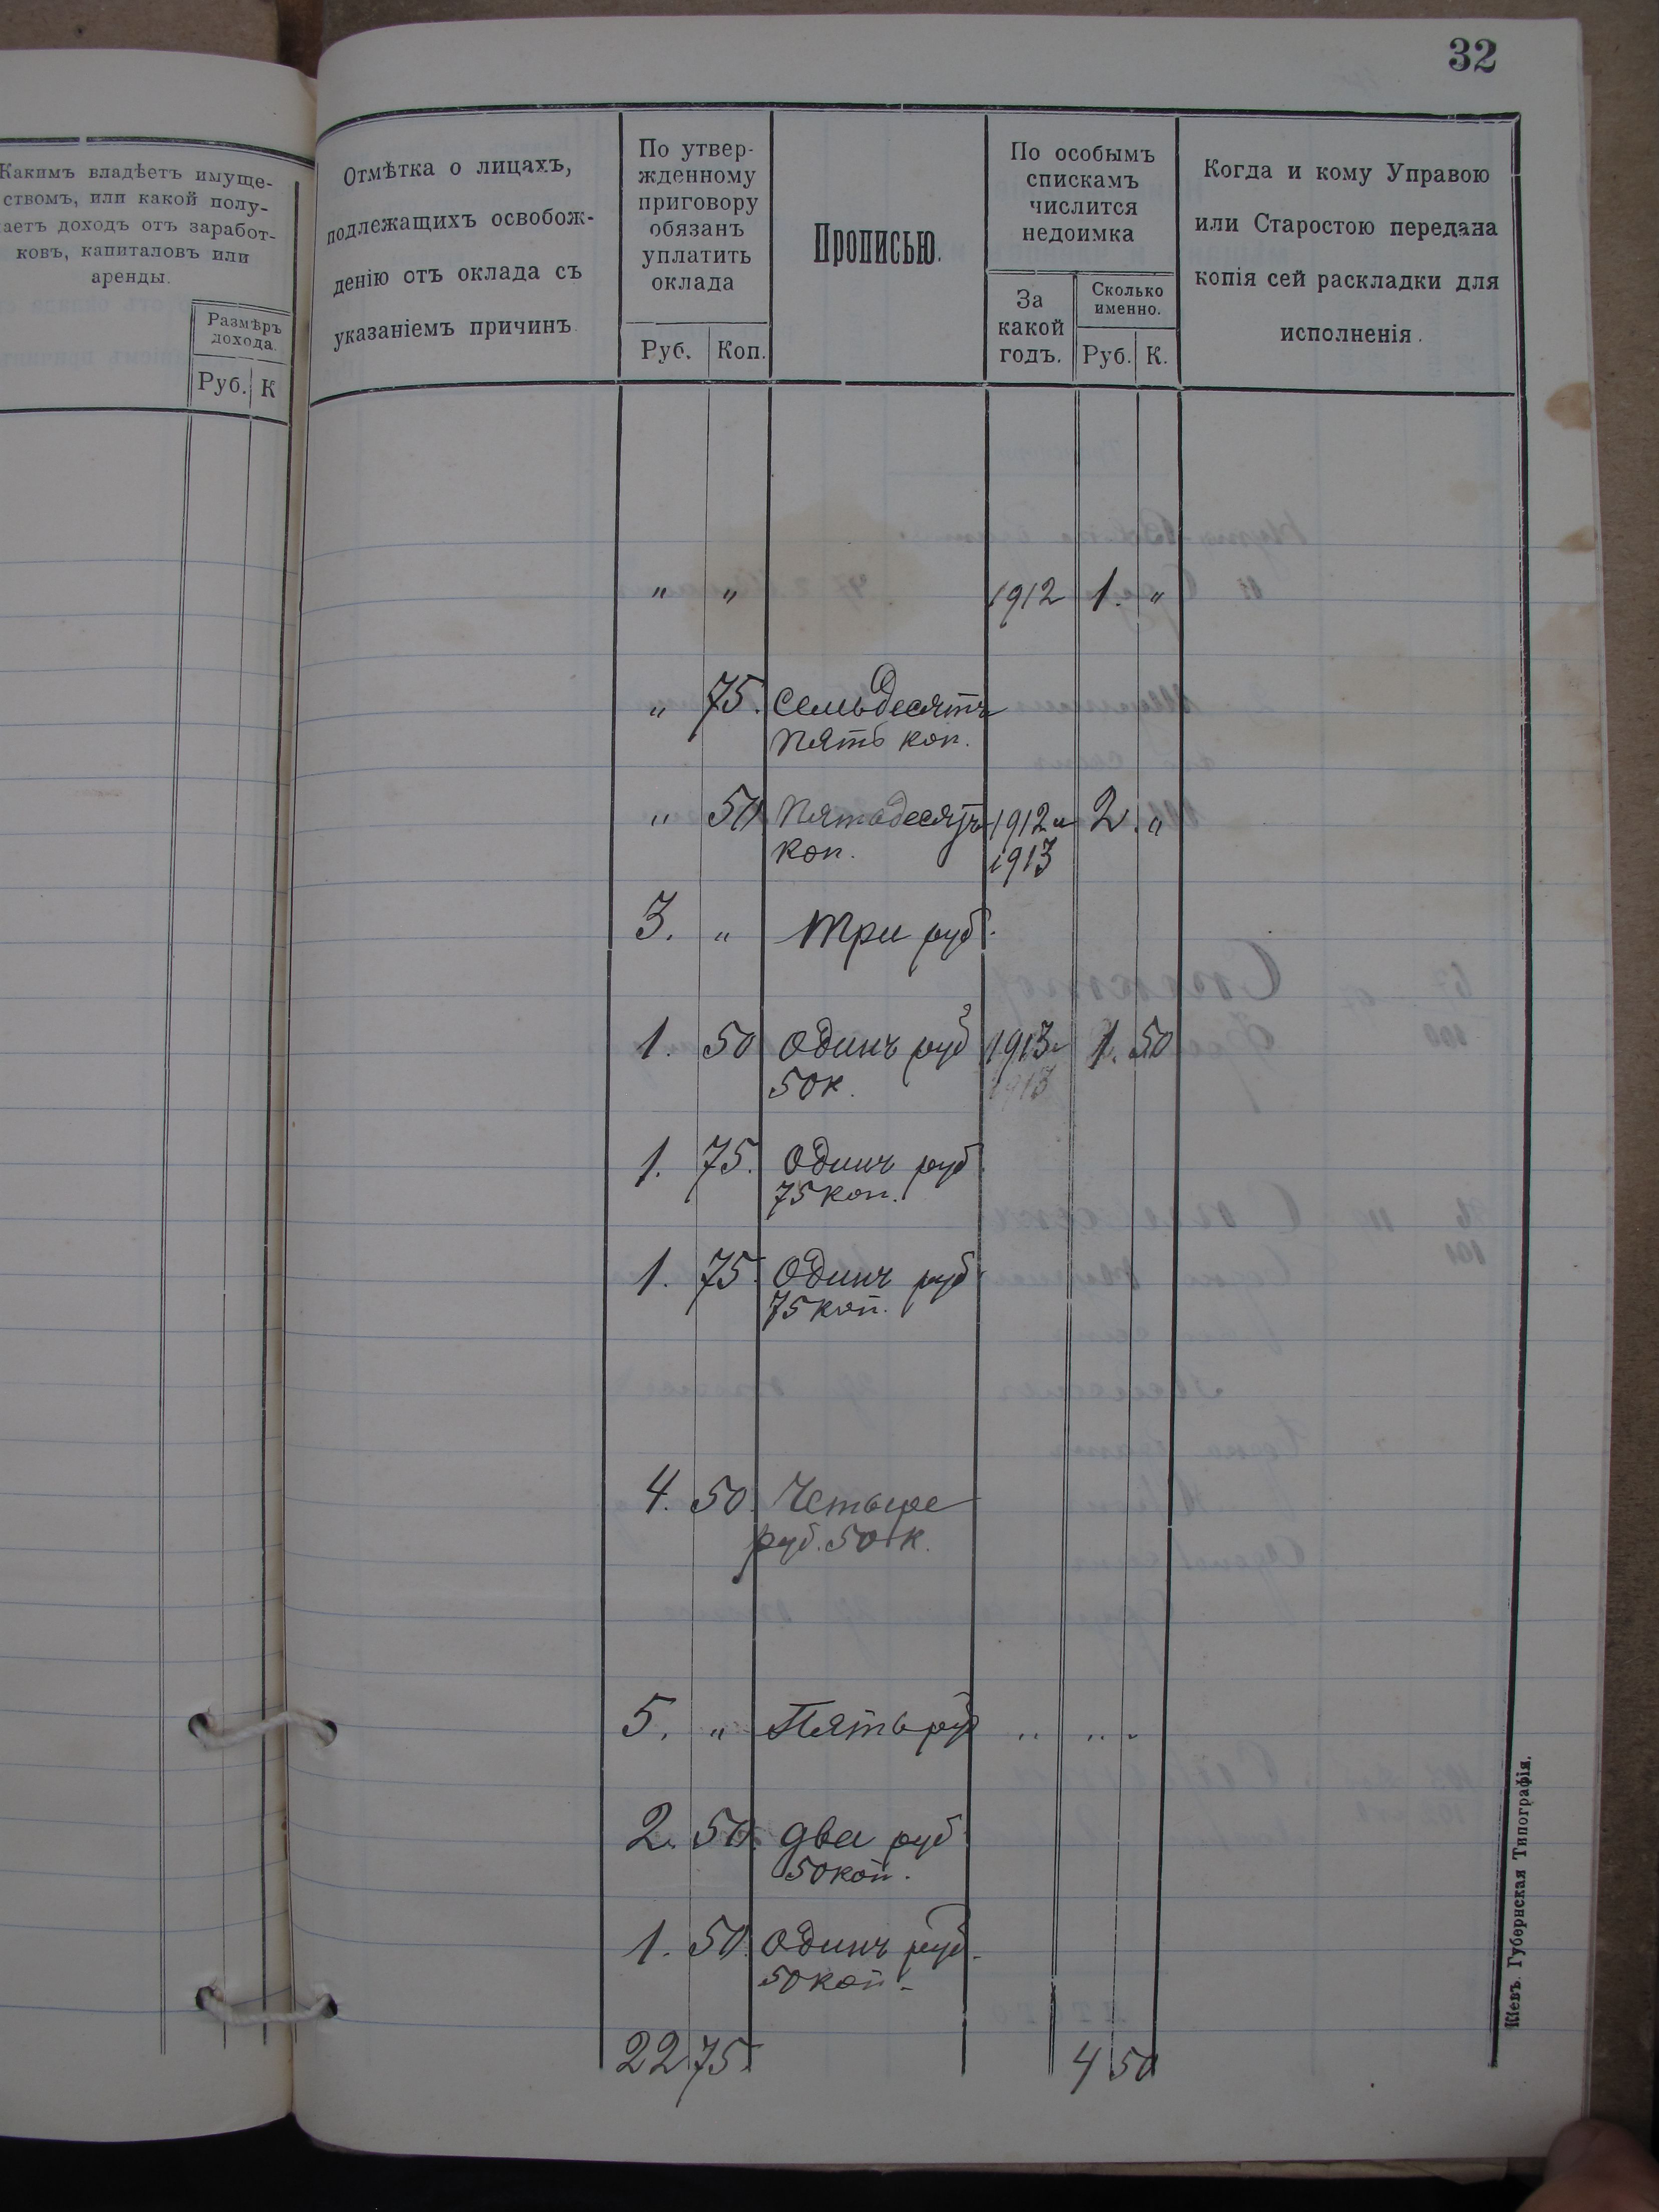 32
Какимъ владѣетъ имуще-
ствомъ, или какой полу-
аетъ доходъ отъ заработ-
ковъ, капиталовъ или
аренды.
Размѣръ
дохода.
Руб. К
Отмѣтка о лицахъ,
подлежащихъ освобож-
денію отъ оклада съ
указаніемъ причинъ.
По утвер-
жденному
приговору
обязанъ
уплатить
оклада
Руб. Коп.
Прописью.
По особымъ
спискамъ
числится
недоимка
За
какой
годъ.
Сколько
именно.
Руб. К.
Когда и кому Управою
или Старостою передана
копія сей раскладки для
исполненія.
" " 1912 1. "
" 75. семьдесятъ
пять коп.
" 50 пятьдесятъ 1912 и 2. "
коп. 1913
3. " три руб.
1. 50 одинъ руб 1913 1. 50
50 к. 1913
1. 75. одинъ руб.
75 коп.
1. 75. одинъ руб.
75 коп.
4. 50. Четыре
руб. 50 к.
5. " Пять руб " " "
2. 50. два руб
50 коп.
1. 50. одинъ руб.
50 коп.
22 75. 4 50
Кіевъ. Губернская Типографія.